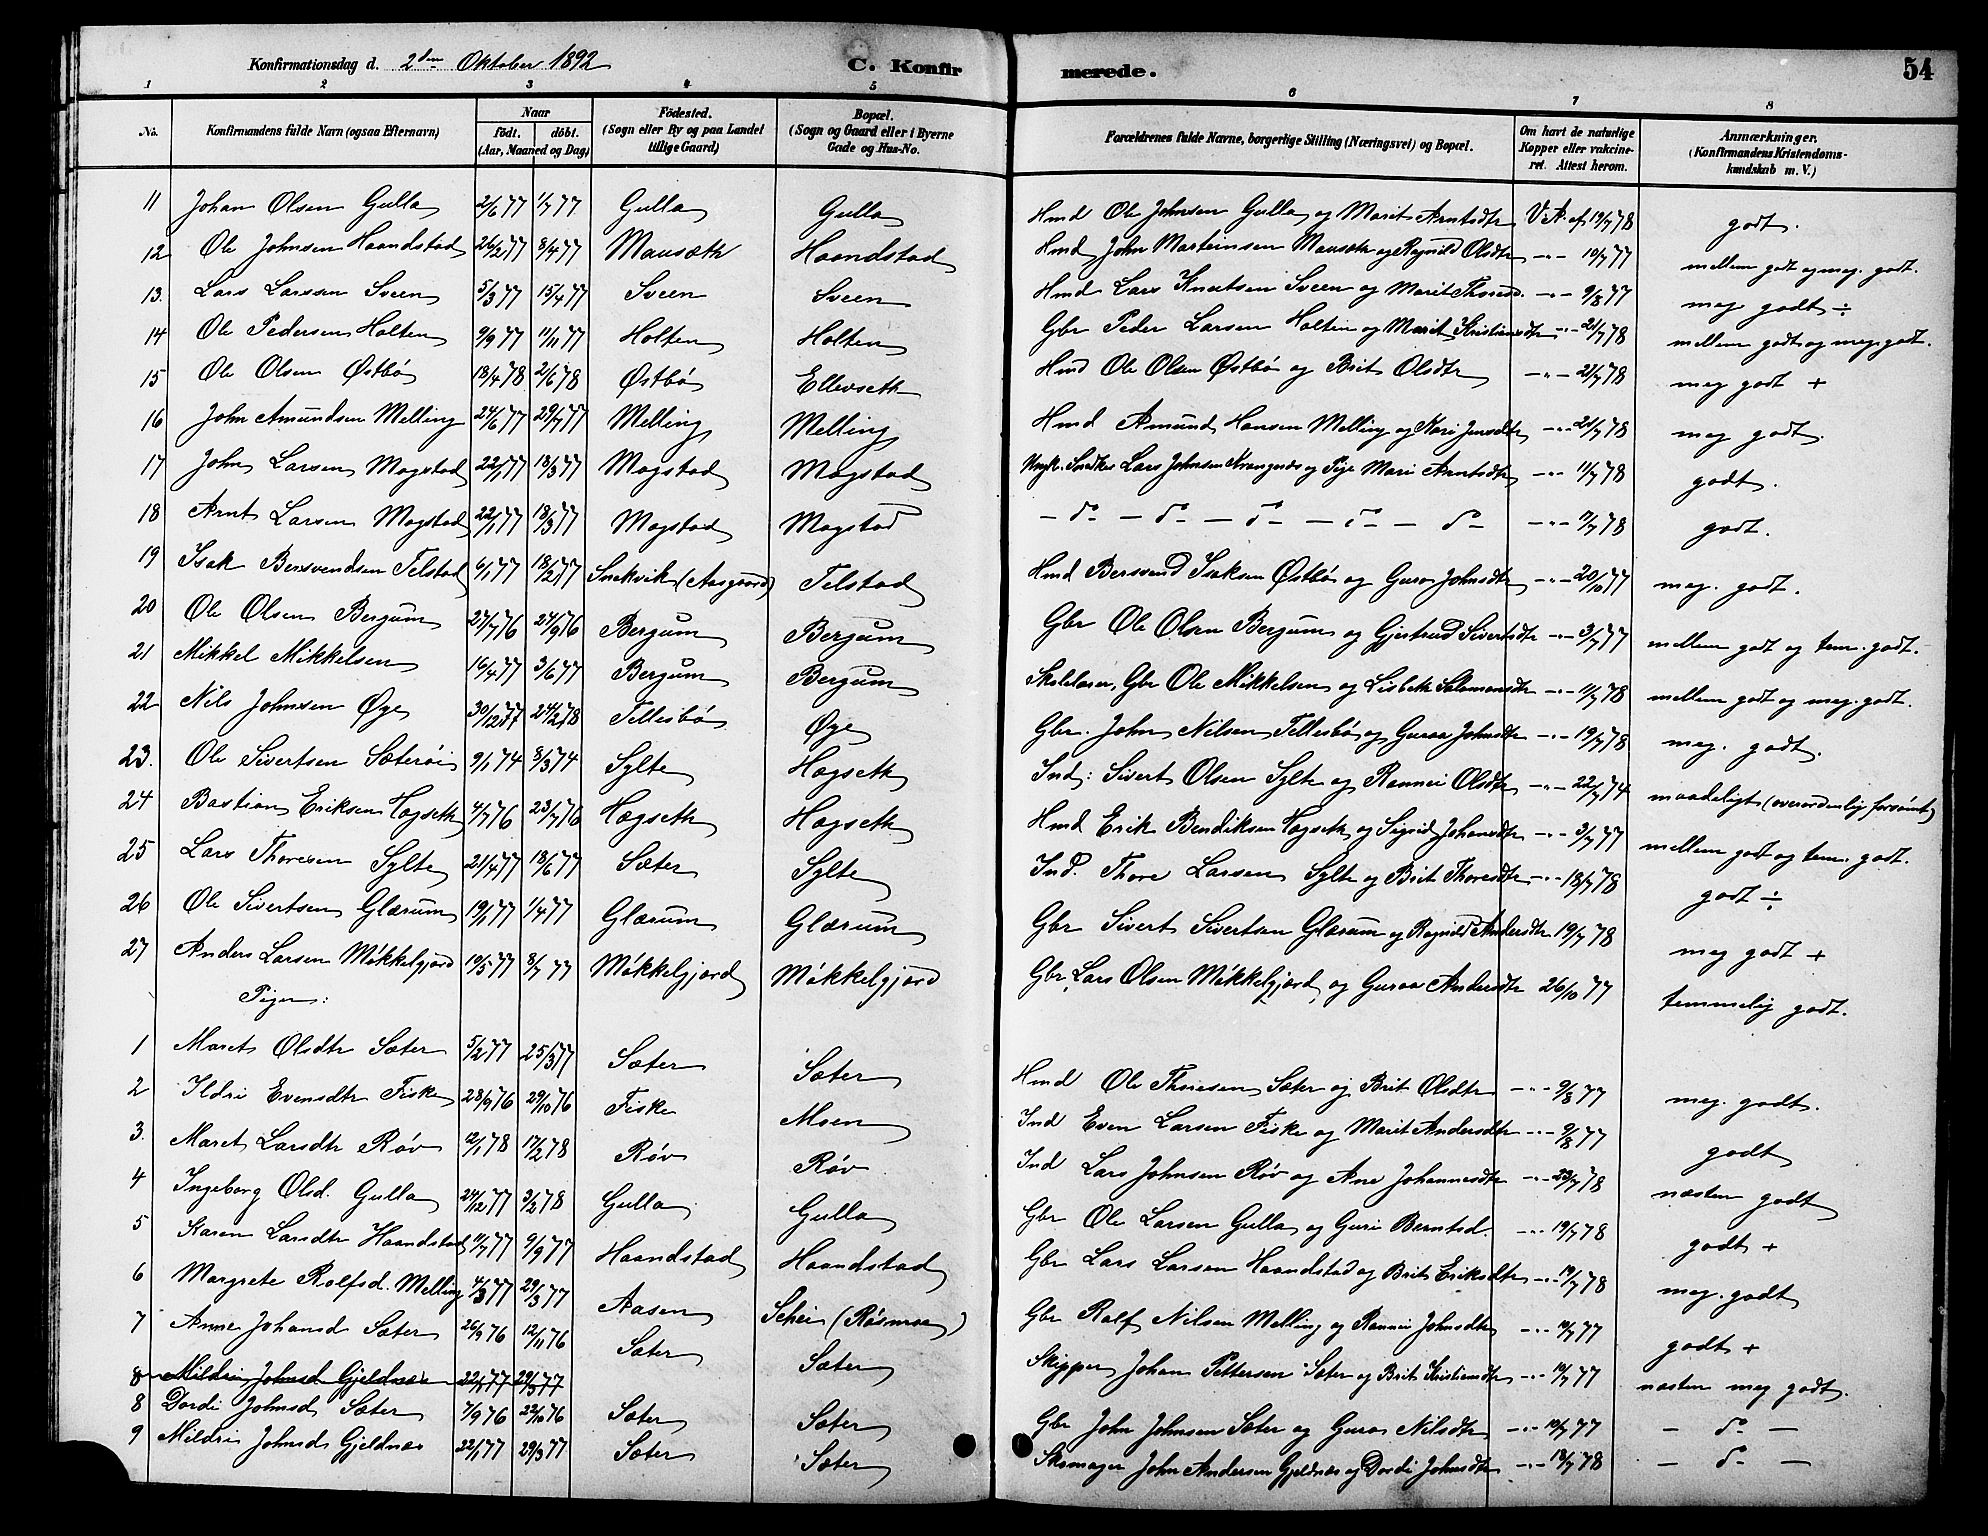 Konfirmationsdag d. 2den Oktober 1892
C. Konfirmerede.
54
1 2 3 4 5 6 7 8
No.
Konfirmandens fulde Navn (ogsaa Efternavn)
Naar
født. døbt.
(Aar, Maaned og Dag)
Fødested.
(Sogn eller By og paa Landet tillige Gaard)
Bopæl.
(Sogn og Gaard eller i Byerne Gade og Hus-No.
Forældrenes fulde Navne, borgerlige Stilling (Næringsvei) og Bopæl.
Om havt de naturlige Kopper eller vakcineret. Attest herom.
Anmærkninger.
(Konfirmandens Kristendomskundskab m. V.)
11 Johan Olsen Gulla 2/6 77 1/7 77 Gulla Gulla Hmd Ole Johnsen Gulla og Marit Arntsdtr V. A. af 19/7 78 godt.
12 Ole Johnsen Haandstad 26/2 77 8/4 77 Mausæth Haandstad Hmd John Marteinsen Mausæth og Ragnild Olsdtr -"- 10/7 77 mellem godt og meg. godt.
13. Lars Larsen Sveen 5/3 77 15/4 77 Sveen Sveen Hmd Lars Knutsen Sveen og Marit Thoresd. -"- 9/8 77 meg godt ÷
14 Ole Pedersen Holten 9/9 77 11/11 77 Holten Holten Gbr Peder Larsen Holten og Marit Kristiansdtr -"- 21/7 78 mellem godt og meg. godt.
15 Ole Olsen Østbø 18/4 78 2/6 78 Østbø Ellevseth Hmd Ole Olsen Østbø og Brit Olsdtr -"- 21/7 78 meg godt +
16 John Amundsen Melling 24/6 77 29/7 77 Melling Melling Hmd Amund Hansen Melling og Kari Jensdtr -"- 21/7 78 meg godt.
17 John Larsen Mogstad 22/1 77 18/3 77 Mogstad Mogstad Ungk. Snedker Lars Johnsen Krangnæs og Pige Mari Arntsdtr -"- 11/7 78 godt.
18 Arnt Larsen Mogstad 22/1 77 18/3 77 Mogstad Mogstad - do - do - do - do - do - -"- 11/7 78 godt.
19 Isak Bersvendsen Telstad 6/1 77 18/2 77 Snekvik (Aasgaard) Telstad Hmd Bersvend Isaksen Østbø og Guroe Johnsdtr -"- 20/10 77 meg. godt.
20 Ole Olsen Bergum 27/7 76 24/9 76 Bergum Bergum Gbr Ole Olsen Bergum og Gjertrud Sivertsdtr -"- 3/7 77 mellem godt og tem. godt.
21 Mikkel Mikkelsen 16/4 77 3/6 77 Bergum Bergum Skolelærer, Gbr Ole Mikkelsen og Lisbeth Salamonsdtr -"- 11/7 78 mellem godt og meg. godt.
22 Nils Johnsen Øye 30/12 77 24/2 78 Tellesbø Øye Gbr. John Nilsen Tellesbø og Guroa Johnsdtr -"- 19/7 78 meg. godt.
23. Ole Sivertsen Sæterøi 9/1 74 8/3 74 Sylte Høgseth Ind: Sivert Olsen Sylte og Rannei Olsdtr -"- 22/7 74 maadeligt (overordenlig forsømt)
24 Bastian Eriksen Høgseth 4/7 76 23/7 76 Høgseth Høgseth Hmd Erik Bendiksen Høgseth og Sigrid Johansdtr -"- 3/7 77 mellem godt og tem. godt.
25 Lars Thoresen Sylte 21/4 77 18/6 77 Sæter Sylte Ind. Thore Larsen Sylte og Brit Thoresdtr -"- 18/7 78 godt ÷
26 Ole Sivertsen Glærum 19/1 77 1/4 77 Glærum Glærum Gbr Sivert Sivertsen Glærum og Ragnild Andersdtr 19/7 78 meg godt +
27 Anders Larsen Møkkelgjerd 19/5 77 8/7 77 Møkkelgjerd Møkkelgjerd Gbr Lars Olsen Møkkelgjerd og Guroa Andersdtr 26/10 77 temmelig godt.
Piger:
1 Maret Olsdtr Sæter 5/2 77 25/3 77 Sæter Sæter Hmd Ole Thoresen Sæter og Brit Olsdtr -"- 9/8 77 meg. godt.
2 Ildri Evensdtr Fiske 28/9 76 29/10 76 Fiske Moen Ind Even Larsen Fiske og Marit Andersdtr -"- 9/8 77 godt
3. Maret Larsdtr Røv 12/1 78 17/2 78 Røv Røv Ind Lars Johnsen Røv og Ane Johannesdtr -"- 23/7 78 næsten godt
4 Ingeborg Olsd. Gulla 24/12 77 3/2 78 Gulla Gulla Gbr Ole Larsen Gulla og Guri Berntsd. -"- 19/7 78 godt +
5 Karen Larsdtr Haandstad 11/7 77 9/9 77 Haandstad Haandstad Gbr Lars Larsen Haandstad og Brit Eriksdtr -"- 19/7 78 meg. godt
6 Margrete Rolfsd. Melling 4/3 77 29/3 77 Aasen Schei (Røsmoe) Gbr Rolf Nilsen Melling og Rannei Johnsdtr -"- 10/7 77 godt +
7 Anne Johansd Sæter 26/9 76 12/11 76 Sæter Sæter Skipper Johan Pettersen Sæter og Brit Kristiansdtr -"- 10/7 77 næsten meg godt.
8 Mildri Johnsd Gjeldnæs 22/1 77 29/3 77
8 Dordi Johnsd Sæter 7/9 76 22/10 76 Sæter Sæter Gbr John Johnsen Sæter og Guroe Nilsdtr -"- 10/7 77 - do -
9 Mildri Johnsd Gjeldnæs 22/1 77 29/3 77 Sæter Sæter Skomager John Andersen Gjeldnæs og Dordi Johnsdtr -"- 18/7 78 - do -